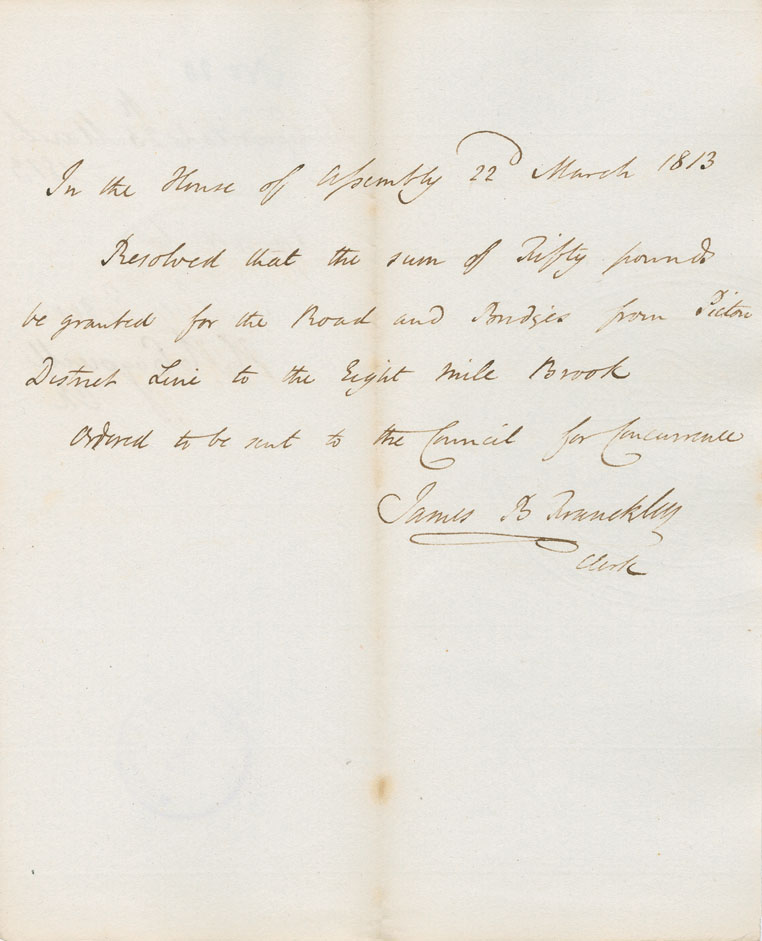 In the House of Assembly 22d March 1813
Resolved that the sum of Fifty pounds
be granted for the Road and Bridges from Pictou
District Line to the Eight Mile Brook
Ordered to be sent to the Council for Concurrence
James B Franckley
Clerk